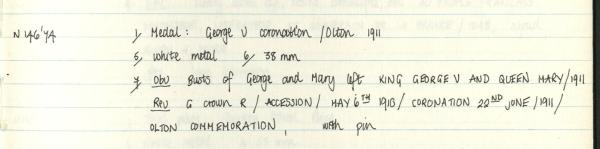 N 146'74 1/ Medal: George V coronation / Olton 1911
5/ white metal 6/ 38 mm
7/ Obv Busts of George and Mary left KING GEORGE V AND QUEEN MARY/1911
Rev G crown R / ACCESSION / MAY 6TH 1910 / CORONATION 22ND JUNE / 1911 /
OLTON COMMEMORATION, with pin